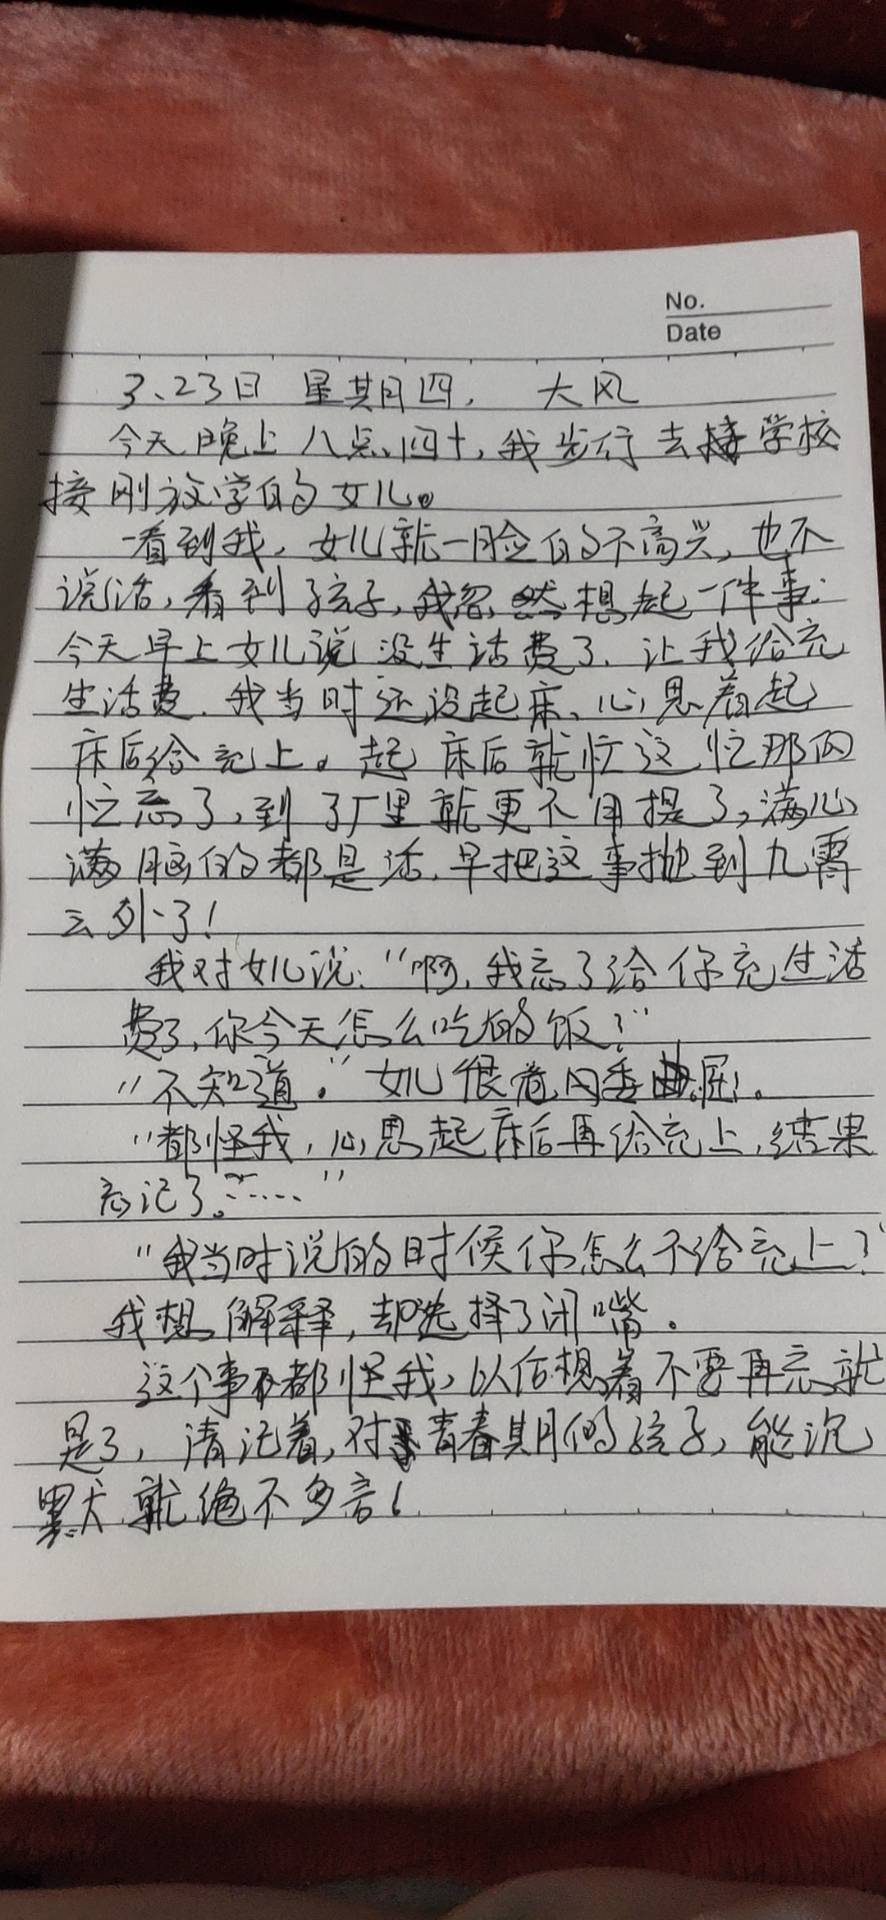 No.
Date
3、23日 星期四, 大风
今天晚上八点四十,我步行去学校
接刚放学的女儿。
一看到我,女儿就一脸的不高兴,也不
说话,看到孩子,我忽然想起一件事:
今天早上女儿说没生活费了、让我给充
生活费、我当时还没起床、心思着起
床后给充上。起床后就忙这忙那的
忙忘了,到了厂里就更不用提了,满心
满脑的都是活,早把这事抛到九霄
云外了!
我对女儿说:“啊,我忘了给你充生活
费了,你今天怎么吃的饭?”
“不知道。”女儿很委屈!。
“都怪我,心思起床后再给充上,结果
忘记了。……”
“我当时说的时候你怎么不给充上?”
我想解释,却选择了闭嘴。
这个事都怪我,以后想着不要再忘就
是了,请记着,对青春期的孩子,能沉
默就绝不多言!